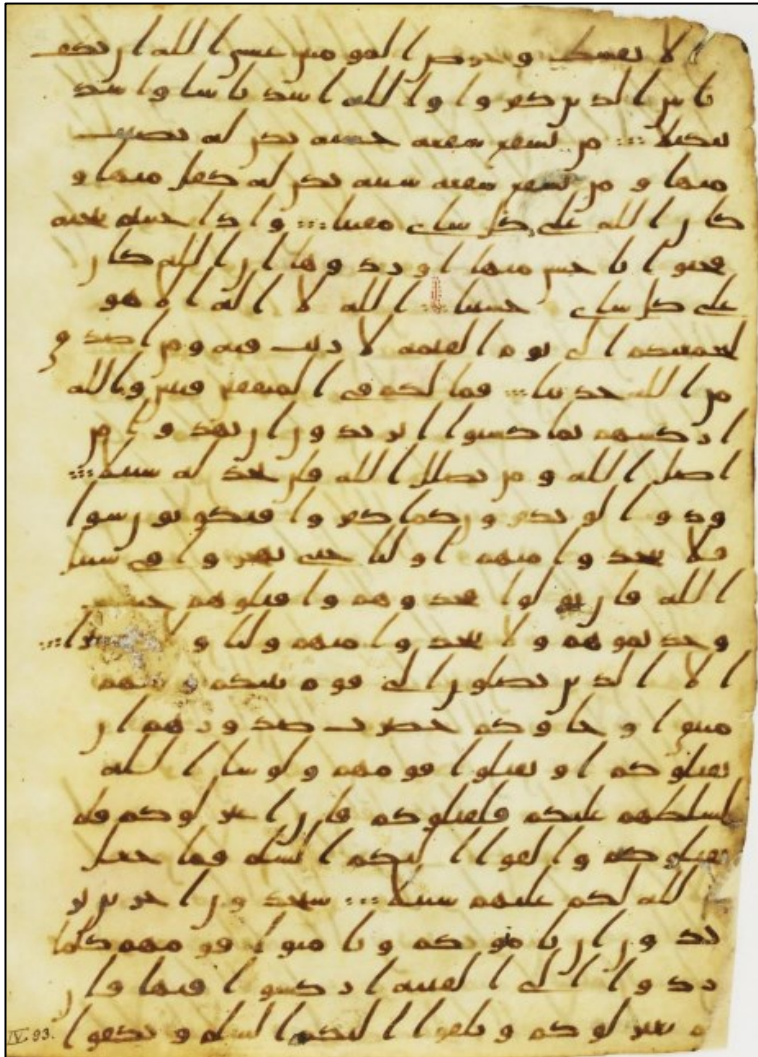 لا نفسك وحرض المومنين عسى الله ان يكف
باس الذين كفروا والله اشد باسا واشد
تنكيلا من يشفع شفعة حسنة يكن له نصيب
منها و من يشفع شفعة سيئة يكن له كفل منها و
كان الله على كل شاى مقيتا واذا حييتم بتحية
فحيوا باحسن منها او ردوها ان الله كان
على كل شاى حسيبا الله لا اله الا هو
ليجمعنكم الى يوم القيمة لا ريب فيه ومن اصدق
من الله حديثا فما لكم في المنفقين فئتين والله
اركسهم بما كسبوا اتريدون ان تهدوا من
اضل الله و من يضلل الله فلن تجد له سبيلا
ودوا لو تكفرون كما كفروا فتكونون سوا
فلا تتخذوا منهم اوليا حتى يهجروا في سبيل
الله فان تولوا فخذوهم واقتلوهم حيث
وجدتموهم ولا تتخذوا منهم وليا ولا
الا الذين يصلون الى قوم بينكم وبينهم
ميثق او جاوكم حصرت صدورهم ان
يقتلوكم او يقتلوا قومهم ولو شا الله
لسلطهم عليكم فلقتلوكم فان اعتزلوكم فلم
يقتلوكم والقوا اليكم السلم فما جعل
الله لكم عليهم سبيلا ستجدون اخرين ير
يدون ان يامنوكم ويامنوا قومهم كلما
ردوا الى الفتنة اركسوا فيها فان
لم يعتزلوكم ويلقوا اليكم السلم ويكفوا
IV. 93.